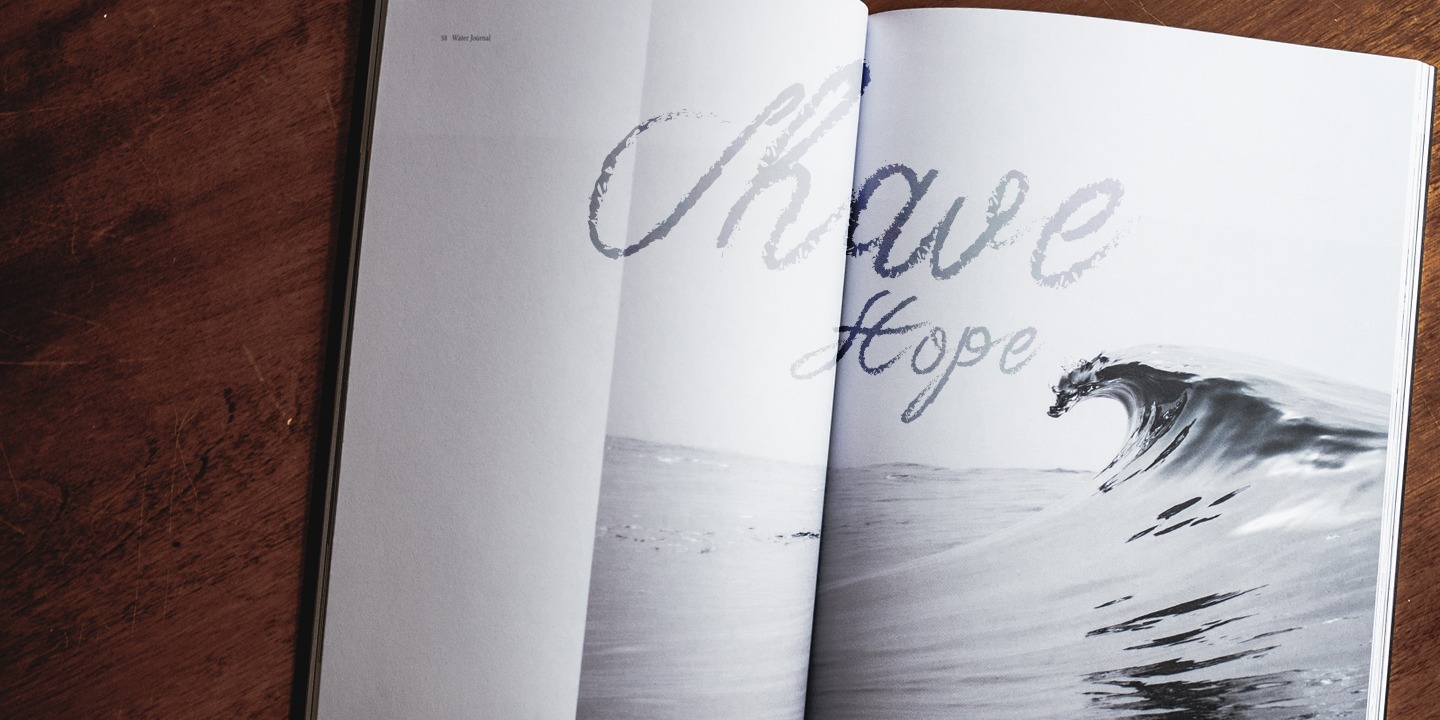 58 Water Journal
have
Hope